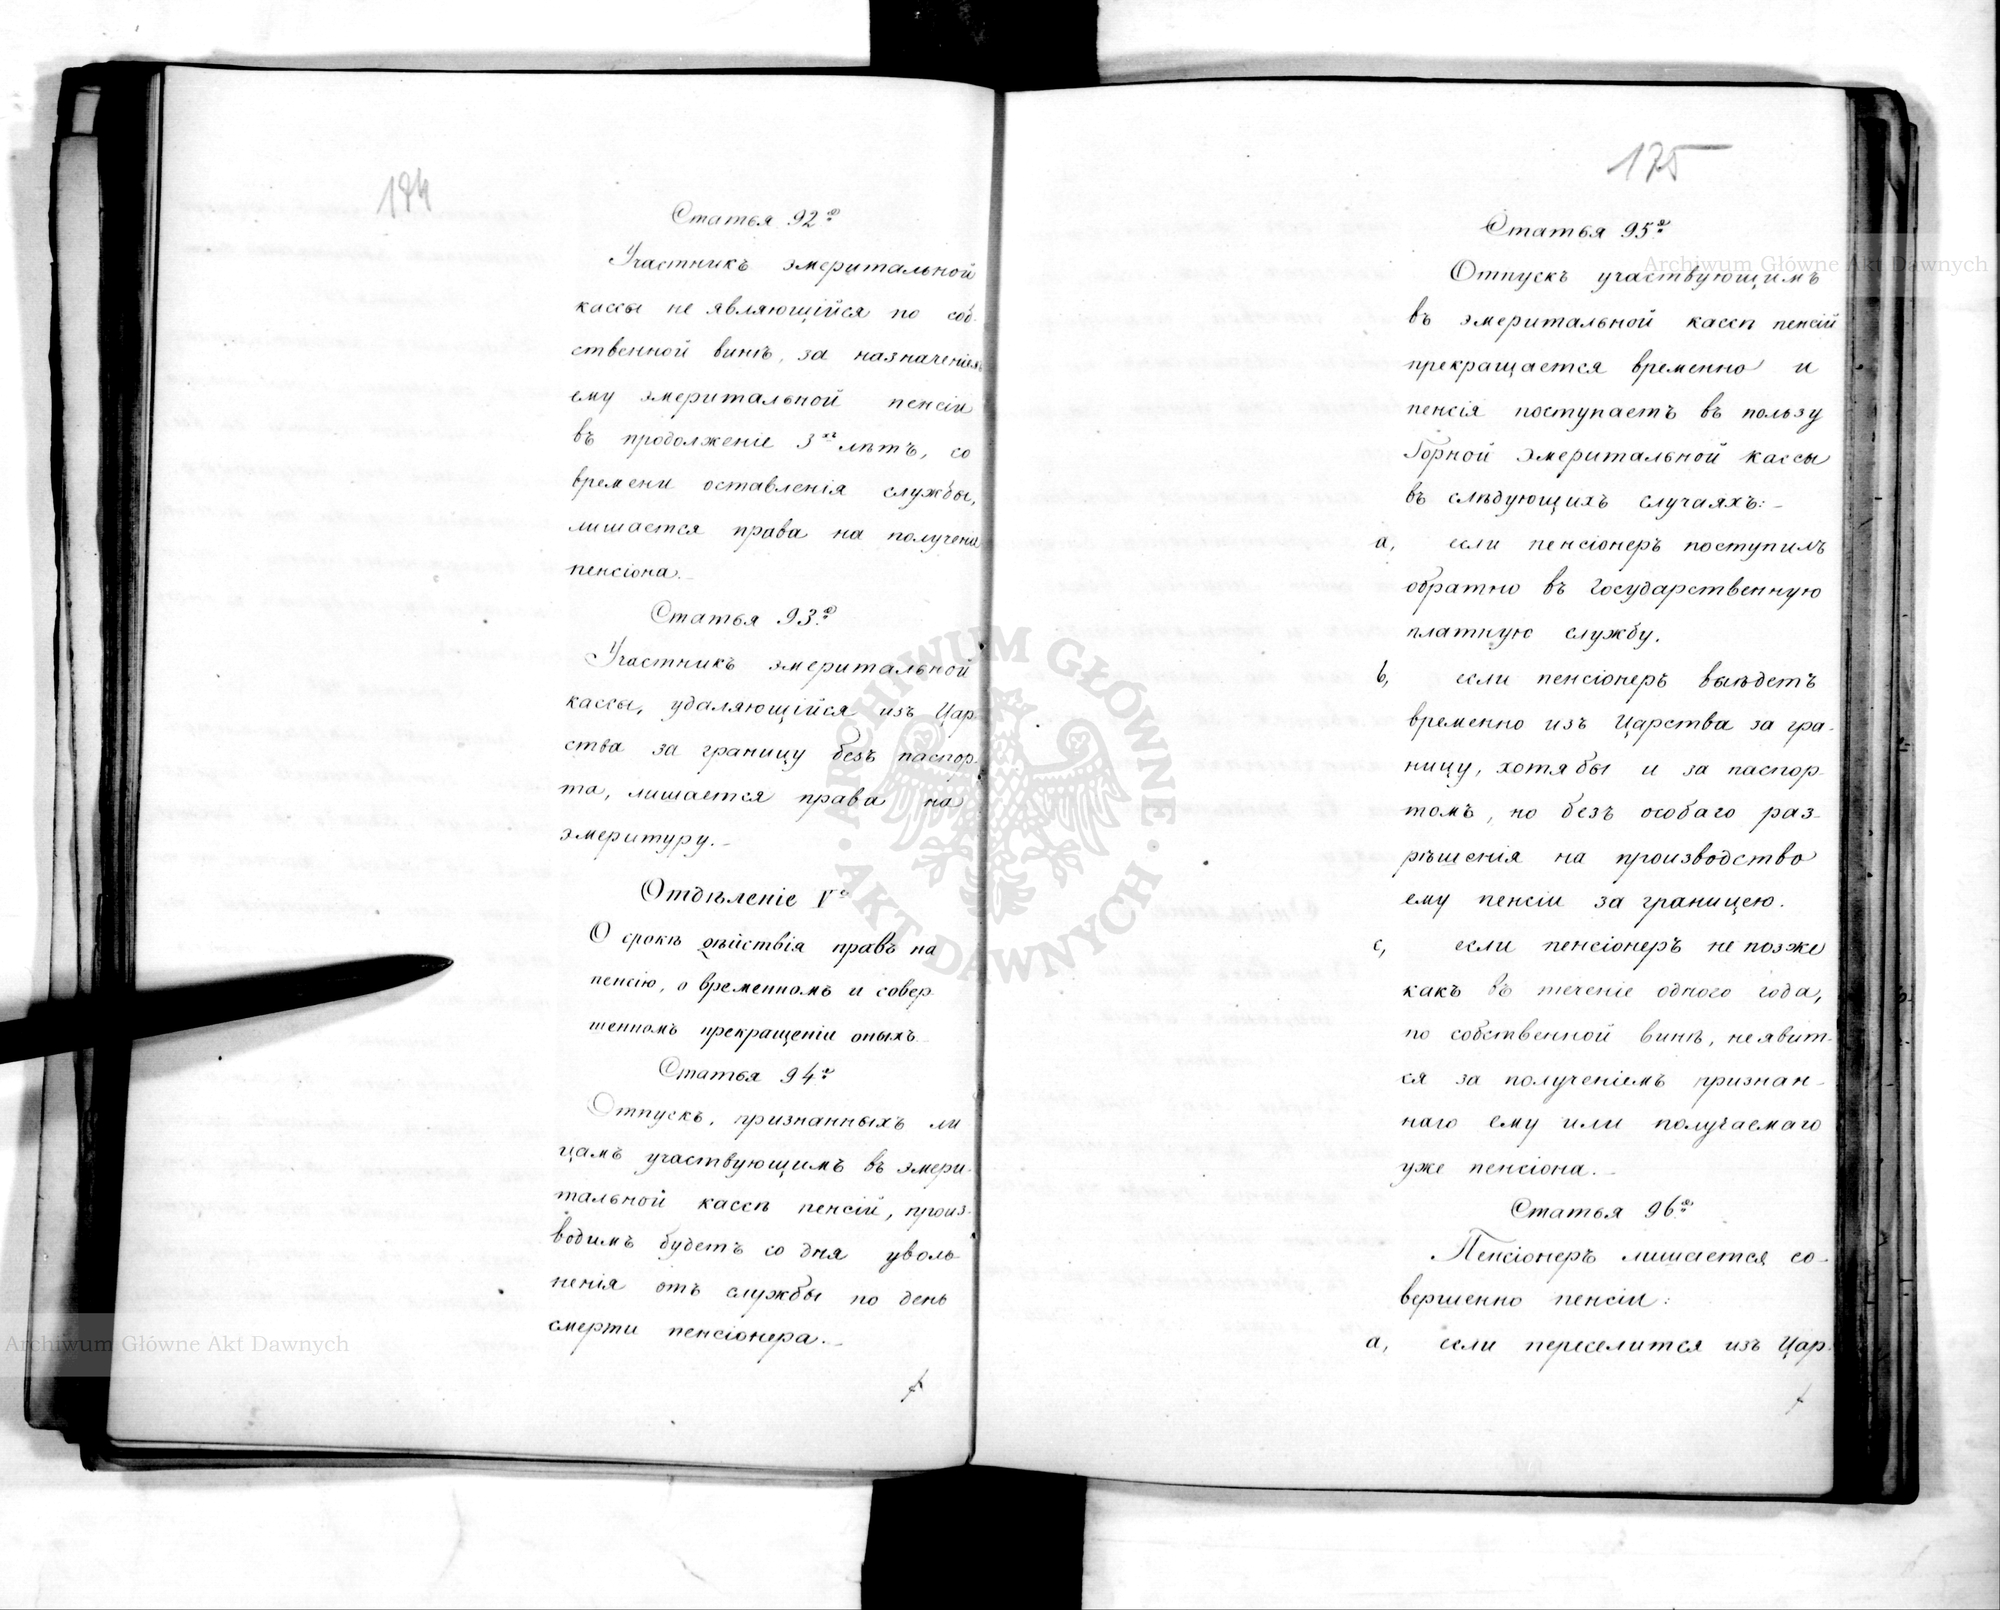 Статья 92ᵃ
Участникъ эмеритальной
кассы не являющійся по соб-
ственной винѣ, за назначеніемъ
ему эмеритальной пенсіи
въ продолженіе 3ˣъ лѣтъ, со
времени оставленія службы,
лишается права на получені
пенсіона.
Статья 93ᵃ
Участникъ эмеритальной
кассы, удаляющійся изъ Цар-
ства за границу безъ паспор-
та, лишается права на
эмеритуру.
Отдѣленіе Vᵉ
О срокѣ дѣйствія правъ на
пенсію, о временномъ и совер-
шенномъ прекращеніи оныхъ
Статья 94ᵃ
Отпускъ, признанныхъ ли
цамъ участвующимъ въ эмери-
тальной кассѣ пенсій, произ-
водимъ будетъ со дня уволь
ненія отъ службы по день
смерти пенсіонера.
175
Статья 95ᵃ
Отпускъ участвующимъ
въ эмеритальной кассѣ пенсій
прекращается временно и
пенсія поступаетъ въ пользу
Горной эмеритальной кассы
въ слѣдующихъ случаяхъ:
a, если пенсіонеръ поступилъ
обратно въ государственную
платную службу.
b, если пенсіонеръ выѣдетъ
временно изъ Царства за гра-
ницу, хотя бы и за паспор-
томъ, но безъ особаго раз-
рѣшенія на производство
ему пенсіи за границею.
c, если пенсіонеръ не позже
какъ въ теченіе одного года,
по собственной винѣ, не явит-
ся за полученіемъ признан-
наго ему или получаемаго
уже пенсіона.
Статья 96ᵃ
Пенсіонеръ лишается со-
вершенно пенсіи:
a, если переселится изъ Цар-
Archiwum Główne Akt Dawnych
ARCHIWUM GŁÓWNE · AKT DAWNYCH ·
Archiwum Główne Akt Dawnych